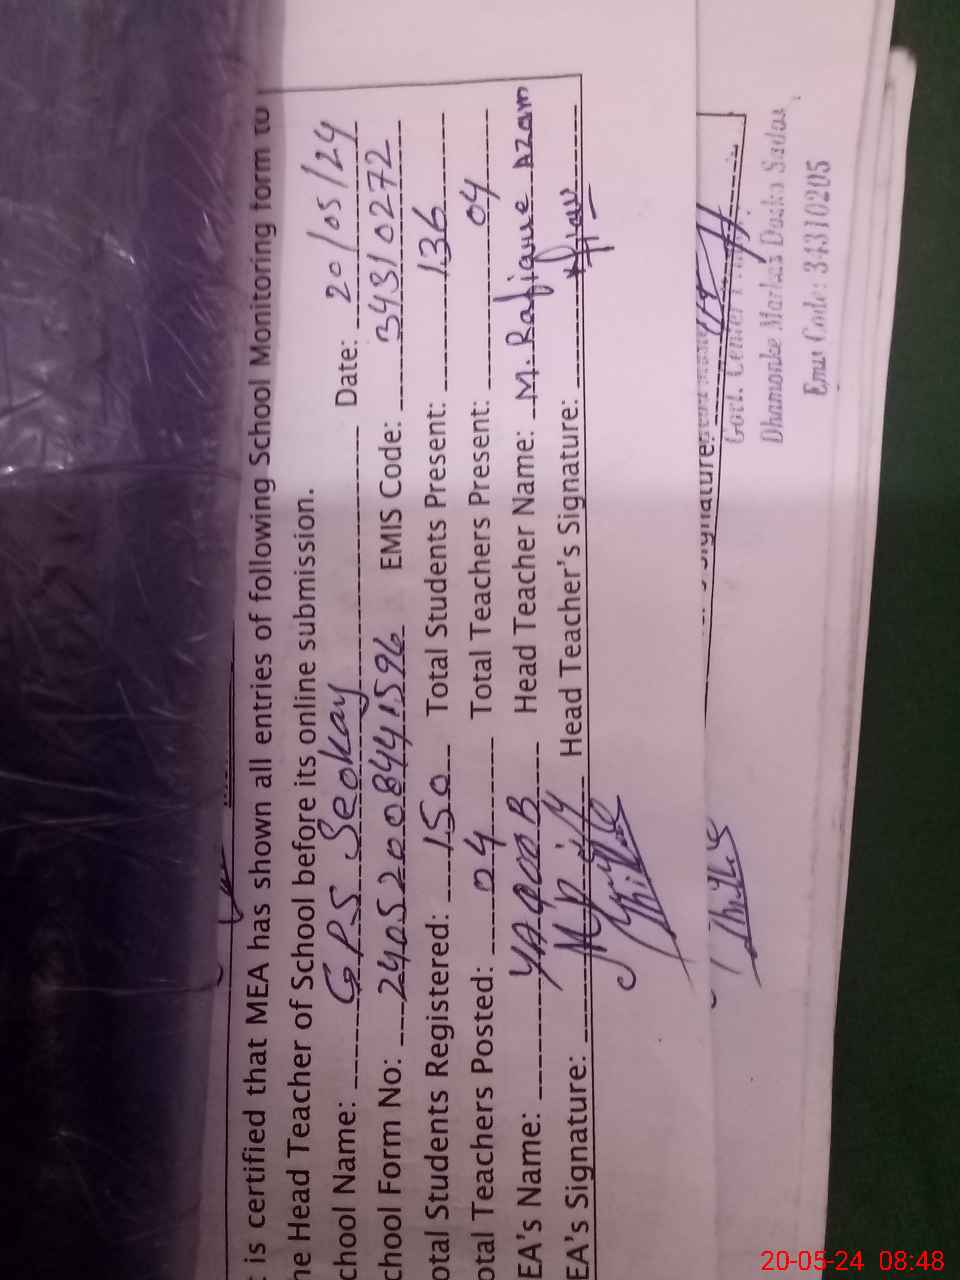 is certified that MEA has shown all entries of following School Monitoring form to
he Head Teacher of School before its online submission.
chool Name: G.P.S Seokay Date: 20/05/24
chool Form No: 24052008441596 EMIS Code: 34310272
otal Students Registered: 150 Total Students Present: 136
otal Teachers Posted: 04 Total Teachers Present: 04
EA's Name: YAQOOB Head Teacher Name: M. Rafique AZam
EA's Signature: Head Teacher's Signature:
Signature:
Govt. Center
Dhamonke Markaz Daska Sadar
Emis Code: 34310205
20-05-24 08:48